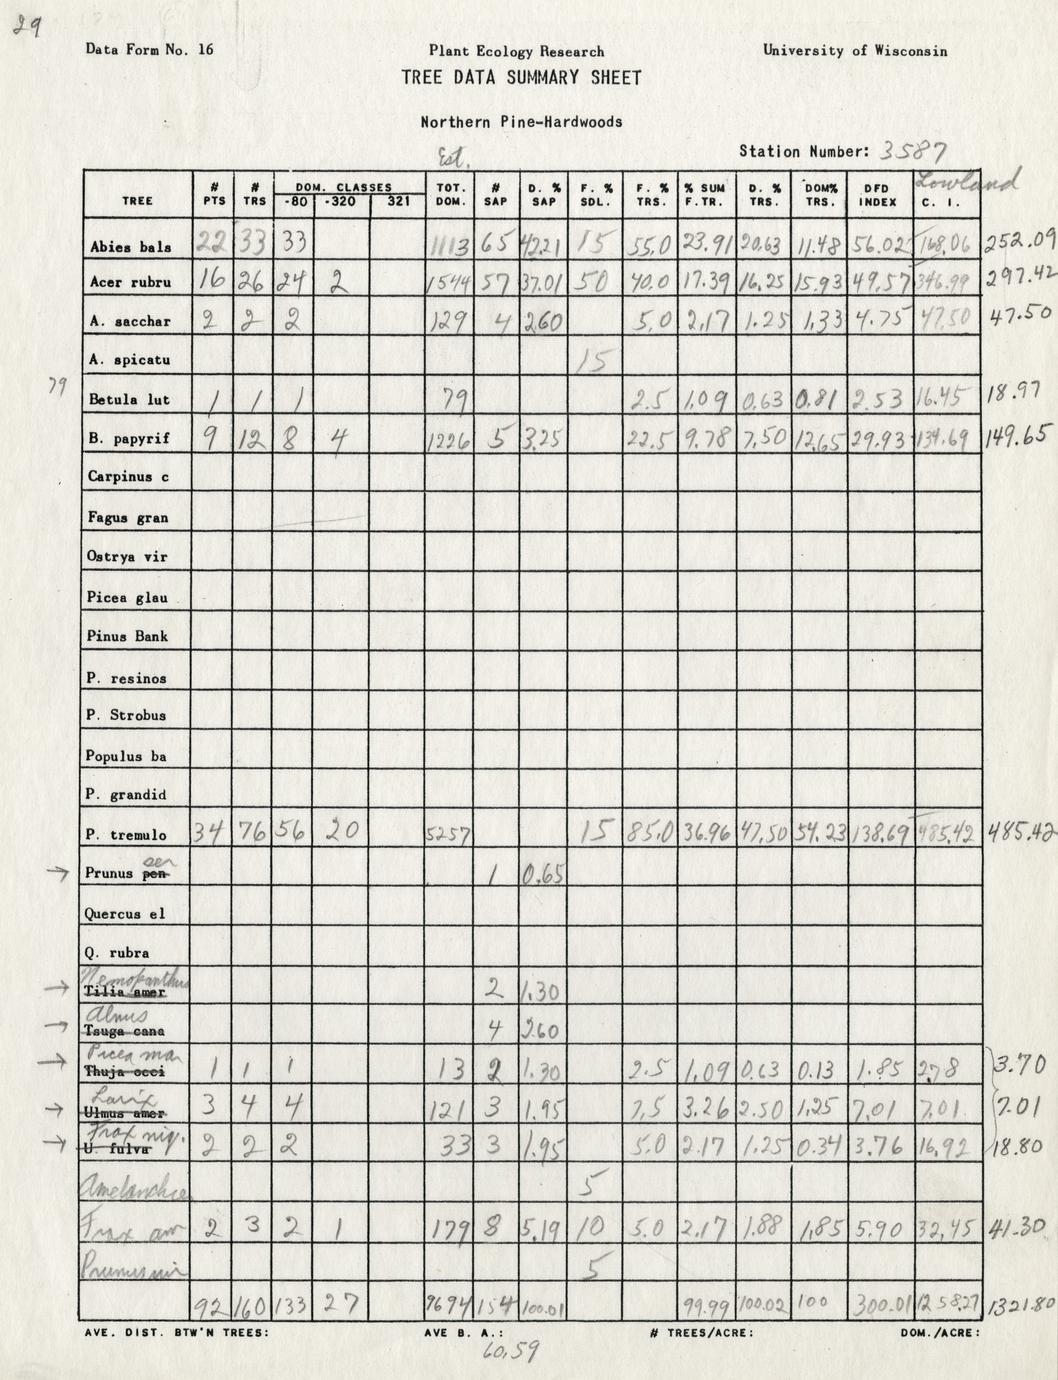 29
Data Form No. 16 Plant Ecology Research University of Wisconsin
TREE DATA SUMMARY SHEET
Northern Pine-Hardwoods
Est. Station Number: 3587
Lowland
TREE # PTS # TRS DOM. CLASSES -80 -320 321 TOT. DOM. # SAP D. % SAP F. % SDL. F. % TRS. % SUM F.TR. D. % TRS. DOM% TRS. DFD INDEX C. I.
Abies bals 22 33 33 1113 65 42.21 15 55.0 23.91 20.63 11.48 56.02 168.06 252.09
Acer rubru 16 26 24 2 1544 57 37.01 50 40.0 17.39 16.25 15.93 49.57 346.99 297.42
A. sacchar 2 2 2 129 4 2.60 5.0 2.17 1.25 1.33 4.75 47.50 47.50
A. spicatu 15
79 Betula lut 1 1 1 79 2.5 1.09 0.63 0.81 2.53 16.45 18.97
B. papyrif 9 12 8 4 1226 5 3.25 22.5 9.78 7.50 12.65 29.93 134.69 149.65
Carpinus c
Fagus gran
Ostrya vir
Picea glau
Pinus Bank
P. resinos
P. Strobus
Populus ba
P. grandid
P. tremulo 34 76 56 20 5257 15 85.0 36.96 47.50 54.23 138.69 485.42 485.42
→ Prunus pen ser 1 0.65
Quercus el
Q. rubra
Nemopanthus
→ Tilia amer 2 1.30
Alnus
→ Tsuga cana 4 2.60
Picea mar
→ Thuja occi 1 1 1 13 2 1.30 2.5 1.09 0.63 0.13 1.85 2.78 3.70
Larix
→ Ulmus amer 3 4 4 121 3 1.95 7.5 3.26 2.50 1.25 7.01 7.01 7.01
Frax nig.
→ U. fulva 2 2 2 33 3 1.95 5.0 2.17 1.25 0.34 3.76 16.92 18.80
Amelanchier 5
Frax am 2 3 2 1 179 8 5.19 10 5.0 2.17 1.88 1.85 5.90 32.45 41.30
Prunus vir 5
92 160 133 27 9694 154 100.01 99.99 100.02 100 300.01 1258.27 1321.80
AVE. DIST. BTW'N TREES: AVE B. A.: # TREES/ACRE: DOM./ACRE:
60.59